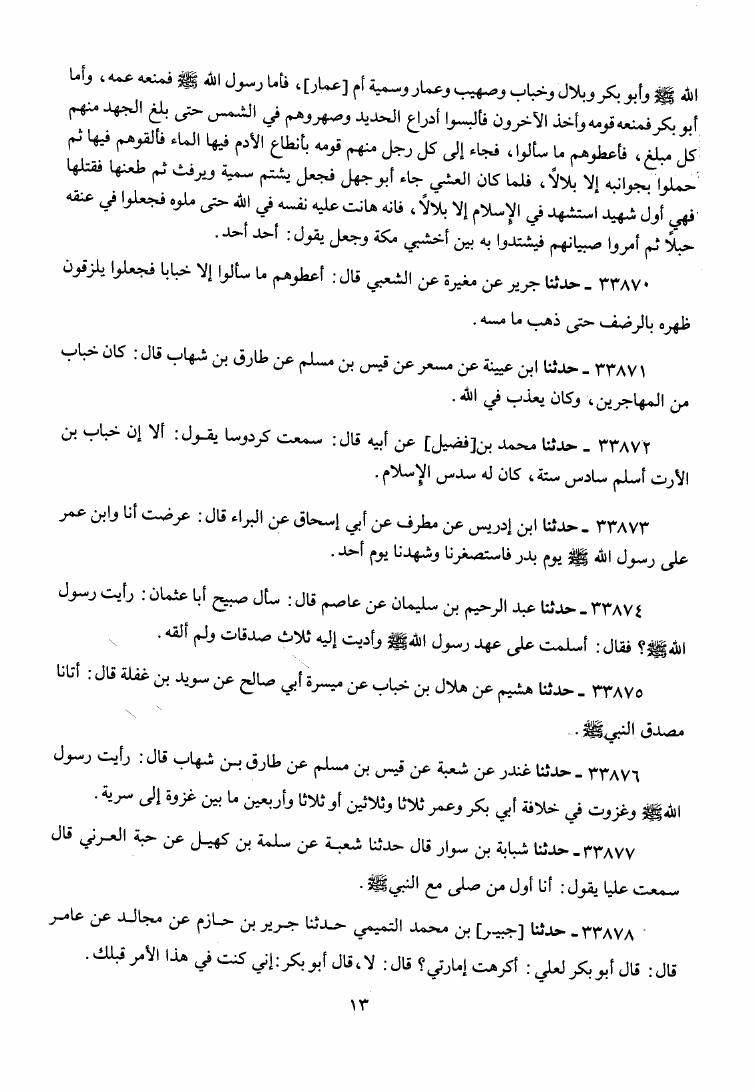 الله ﷺ وأبو بكر وبلال وخباب وصهيب وعمار وسمية أم [عمار]، فأما رسول الله ﷺ فمنعه عمه، وأما
أبو بكر فمنعه قومه وأخذ الآخرون فألبسوا أدراع الحديد وصهروهم في الشمس حتى بلغ الجهد منهم
كل مبلغ، فأعطوهم ما سألوا، فجاء إلى كل رجل منهم قومه بأنطاع الأدم فيها الماء فألقوهم فيها ثم
حملوا بجوانبه إلا بلالاً، فلما كان العشي جاء أبو جهل فجعل يشتم سمية ويرفث ثم طعنها فقتلها
فهي أول شهيد استشهد في الإسلام إلا بلالاً، فانه هانت عليه نفسه في الله حتى ملوه فجعلوا في عنقه
حبلاً ثم أمروا صبيانهم فيشتدوا به بين أخشبي مكة وجعل يقول: أحد أحد.
٣٣٨٧٠ ـ حدثنا جرير عن مغيرة عن الشعبي قال: أعطوهم ما سألوا إلا خبابا فجعلوا يلزقون
ظهره بالرضف حتى ذهب ما مسه.
٣٣٨٧١ ـ حدثنا ابن عيينة عن مسعر عن قيس بن مسلم عن طارق بن شهاب قال: كان خباب
من المهاجرين، وكان يعذب في الله.
٣٣٨٧٢ ـ حدثنا محمد بن[فضيل] عن أبيه قال: سمعت كردوسا يقول: ألا إن خباب بن
الأرت أسلم سادس ستة، كان له سدس الإسلام.
٣٣٨٧٣ ـ حدثنا ابن إدريس عن مطرف عن أبي إسحاق عن البراء قال: عرضت أنا وابن عمر
على رسول الله ﷺ يوم بدر فاستصغرنا وشهدنا يوم أحد.
٣٣٨٧٤ ـ حدثنا عبد الرحيم بن سليمان عن عاصم قال: سأل صبيح أبا عثمان: رأيت رسول
الله ﷺ؟ فقال: أسلمت على عهد رسول الله ﷺ وأديت إليه ثلاث صدقات ولم ألقه.
٣٣٨٧٥ ـ حدثنا هشيم عن هلال بن خباب عن ميسرة أبي صالح عن سويد بن غفلة قال: أتانا
مصدق النبي ﷺ.
٣٣٨٧٦ ـ حدثنا غندر عن شعبة عن قيس بن مسلم عن طارق بن شهاب قال: رأيت رسول
الله ﷺ وغزوت في خلافة أبي بكر وعمر ثلاثا وثلاثين أو ثلاثا وأربعين ما بين غزوة إلى سرية.
٣٣٨٧٧ ـ حدثنا شبابة بن سوار قال حدثنا شعبة عن سلمة بن كهيل عن حبة العرني قال
سمعت عليا يقول: أنا أول من صلى مع النبي ﷺ.
٣٣٨٧٨ ـ حدثنا [جبير] بن محمد التميمي حدثنا جرير بن حازم عن مجالد عن عامر
قال: قال أبو بكر لعلي: أكرهت إمارتي؟ قال: لا، قال أبو بكر: إني كنت في هذا الأمر قبلك.
١٣